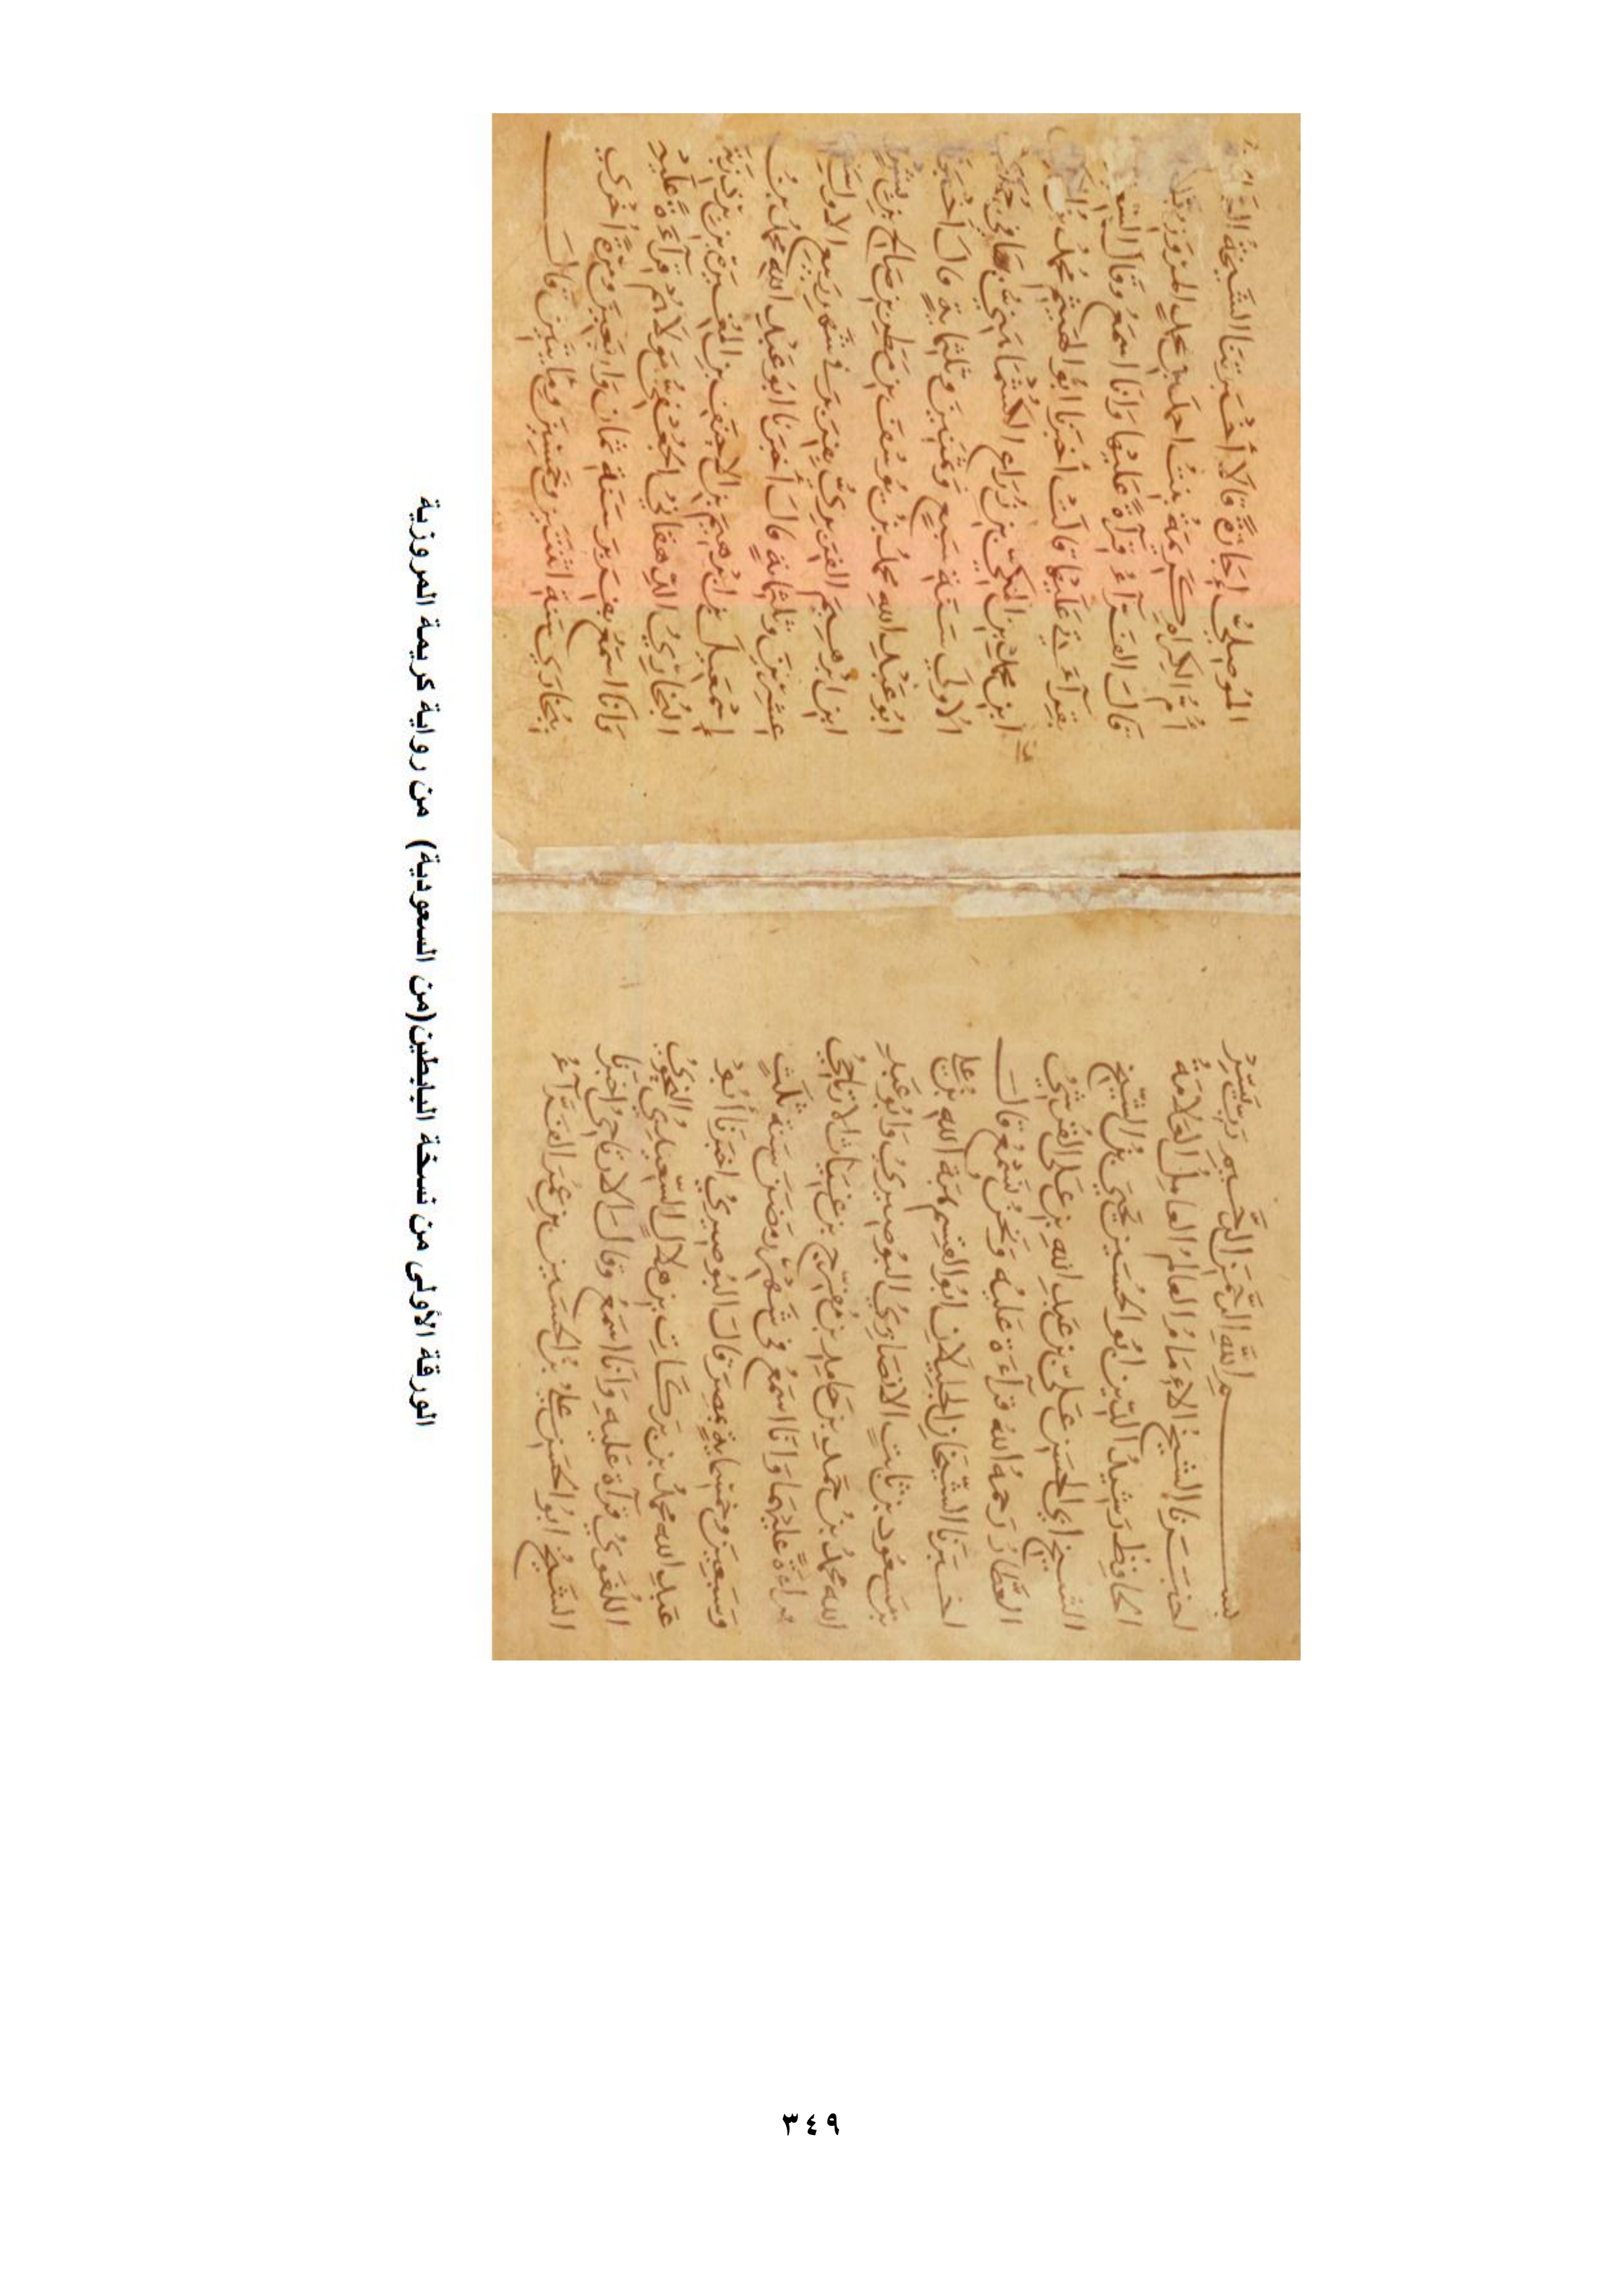 بسم الله الرحمن الرحيم رب يسر
اخبرنا الشيخ الامام العالم العامل العلامة
الحافظ رشيد الدين ابو الحسين يحيى بن الشيخ
الشيخ ابي الحسن علي بن عبد الله بن علي القرشي
العطار رحمه الله قراءة عليه ونحن نسمع قال
اخبرنا الشيخان الجليلان ابو القسم هبة الله بن علي
بن مسعود بن ثابت الانصاري البوصيري وابو عبد
الله محمد بن حمد بن حامد بن مفرج بن غياث الارتاحي
قراءة عليهما وانا اسمع في شهر رمضن سنة ثلث
وتسعين وخمسماية بمصر قال البوصيري اخبرنا ابو
عبد الله محمد بن بركات بن هلال السعيدي النحوي
اللغوي قراءة عليه وانا اسمع وقال الارتاحي اخبرنا
الشيخ ابو الحسن علي بن الحسين بن عمر الفراء
الموصلي إجازة قالا أخبرتنا الشيخة
أم الكرام كريمة بنت احمد بن محمد المروزية
قال الفراء قراءة عليها وانا اسمع وقال
بقراءتي عليها قالت أخبرنا ابو الهيثم محمد بن
ابن محمد بن المكي بن زراع الكشماهني بها في
الاولى سنة سبع وثمنين وثلثماية قال
ابو عبد الله محمد بن يوسف بن مطر بن صالح بن بشر
ابن ابرهيم الفربري بفربر في شهر ربيع الاول
عشرين وثلثماية قال أخبرنا ابو عبد الله محمد بن
إسمعيل بن ابرهيم بن المغيرة بن بردزبه
البخاري الجعفي مولاهم قراءة عليه
وانا اسمع بفربر سنة ثمان واربعين ومرة أخرى
ببخارى سنة اثنتين وخمسين ومايتين قال
الورقة الأولى من نسخة البابطين(من السعودية) من رواية كريمة المروزية
٣٤٩